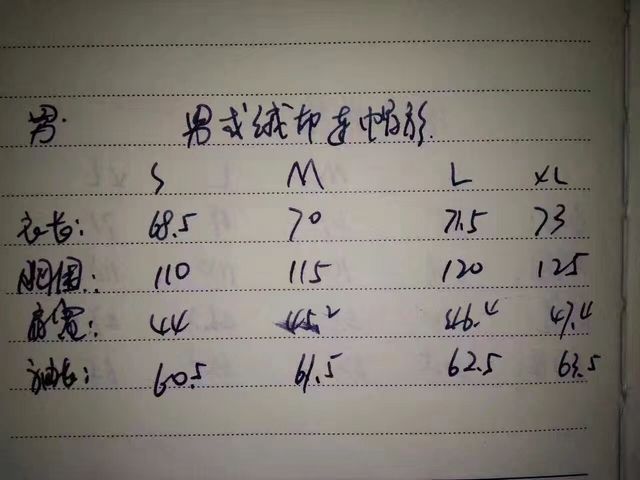 男. 男式绒布连帽衫.
S M L XL
衣长: 68.5 70 71.5 73
胸围: 110 115 120 125
肩宽: 44 45.2 46.4 47.4
袖长: 60.5 61.5 62.5 63.5